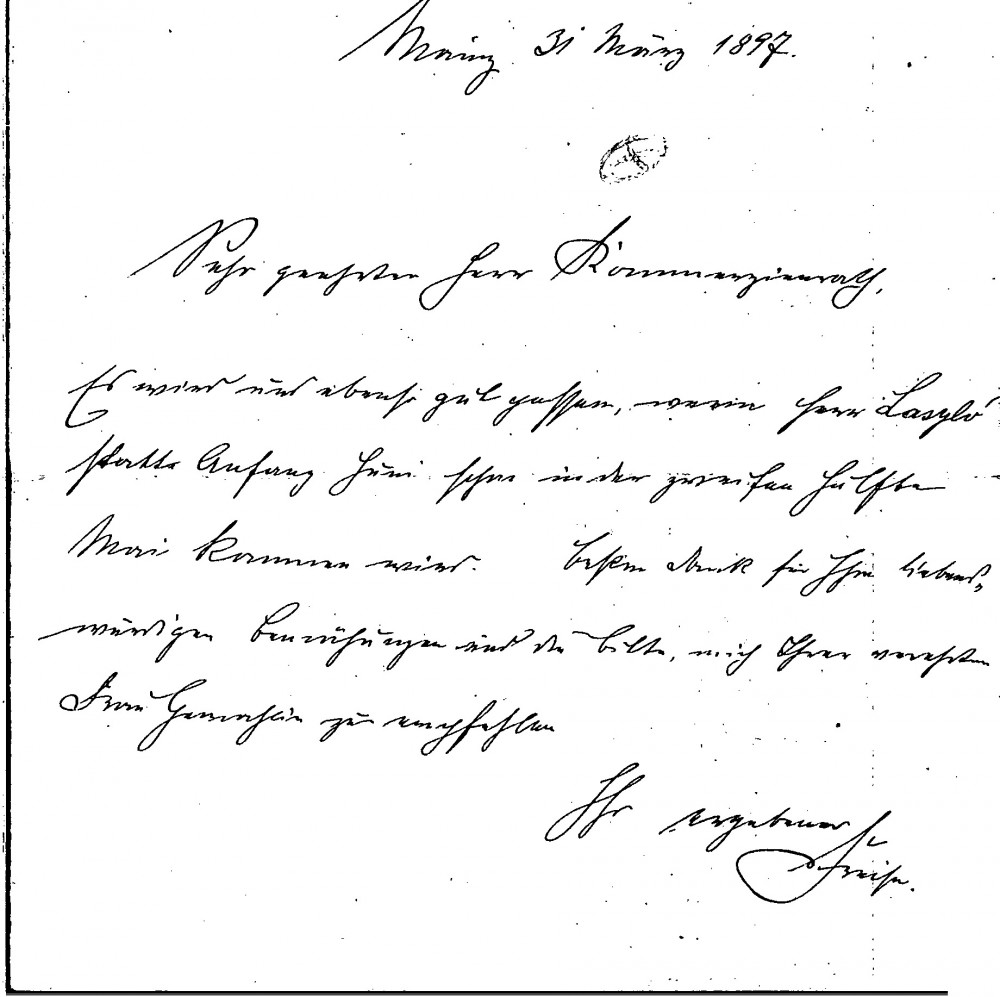 Mainz 31 März 1897.
Sehr geehrter Herr Kommerzienrath,
Es wird uns ebenso gut passen, wenn Herr Laszló
statt Anfang Juni schon in der zweiten Hälfte
Mai kommen wird. Besten Dank für Ihre liebens-
würdigen Bemühungen und die Bitte, mich Ihrer verehrten
Frau Gemahlin zu empfehlen
Ihr ergebener